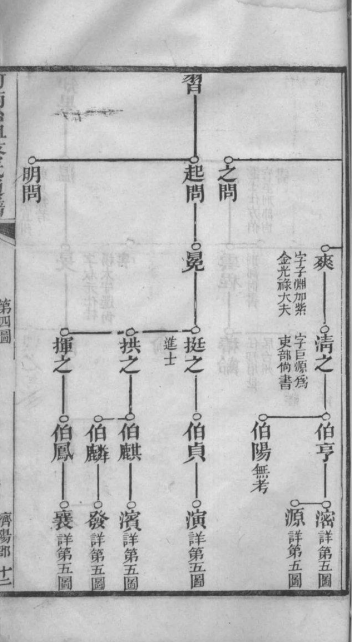 習
之問
起問
明問
爽
字子淵加紫
金光祿大夫
晃
清之
字巨源為
吏部尚書
挺之
進士
拱之
揮之
伯亨
伯陽 無考
伯貞
伯麒
伯麟
伯鳳
滵 詳第五圖
源 詳第五圖
演 詳第五圖
濱 詳第五圖
發 詳第五圖
襄 詳第五圖
第四圖
濟陽郡
十二